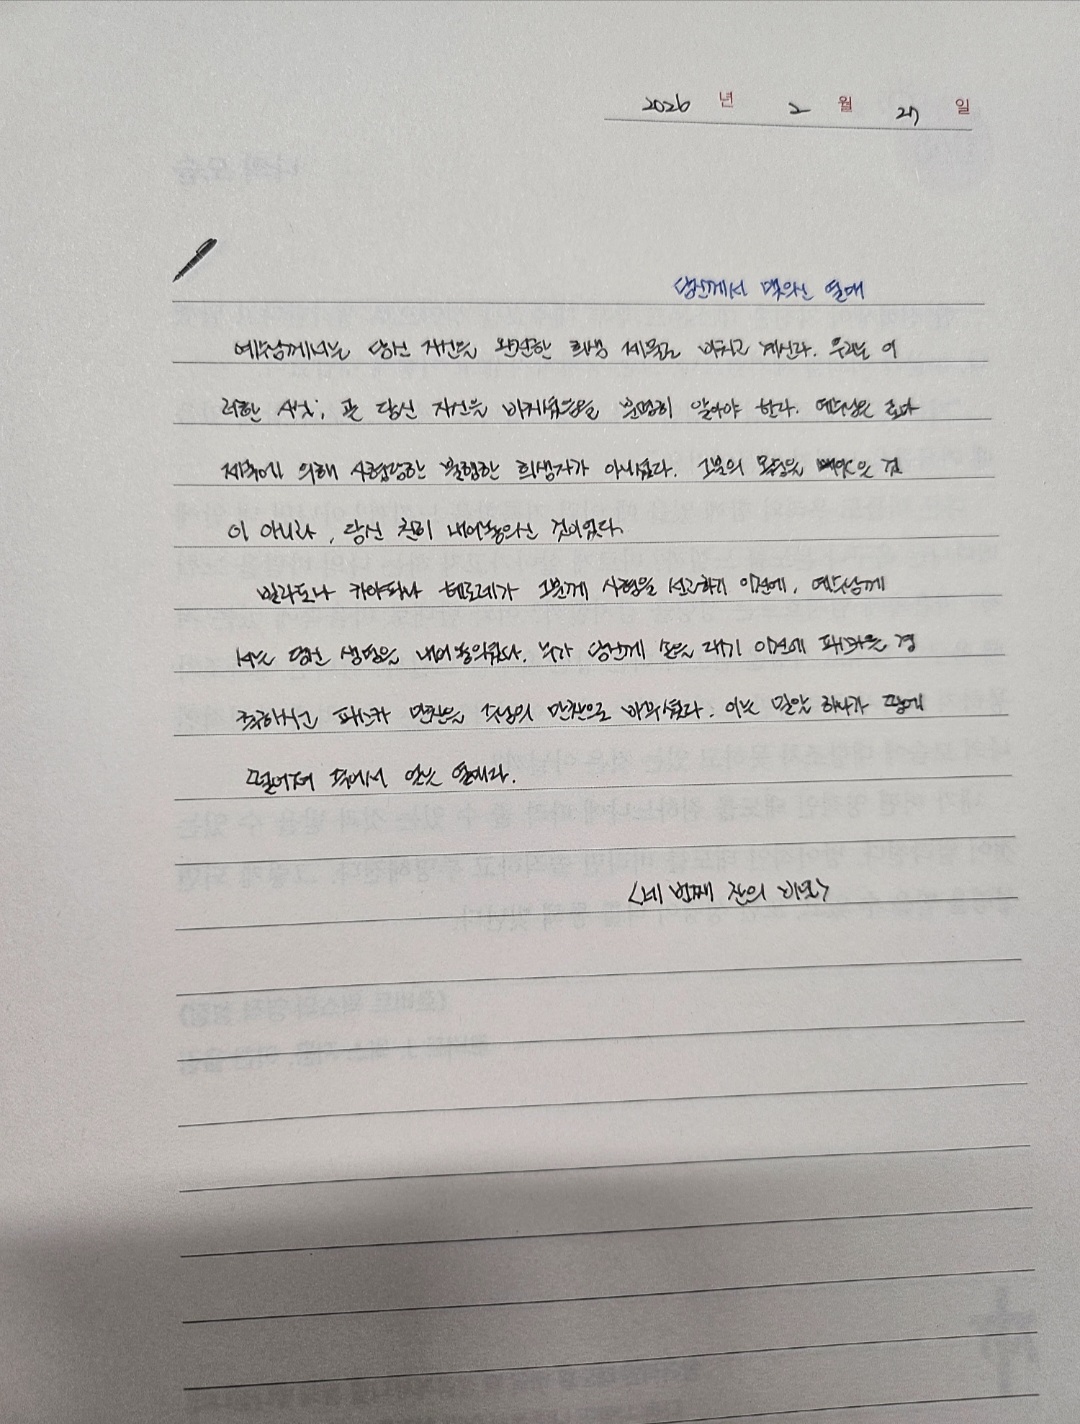 2026 년 2 월 27 일
당신께서 맺으신 열매
예수님께서는 당신 자신을 완전한 희생 제물로 바치고 계신다. 우리는 이
러한 사실, 곧 당신 자신을 바치셨음을 분명히 알아야 한다. 예수님은 로마
제국에 의해 사형당한 불행한 희생자가 아니셨다. 그분의 목숨을 빼앗은 것
이 아니라, 당신 친히 내어놓으신 것이었다.
빌라도나 카야파나 헤로데가 그분께 사형을 선고하기 이전에, 예수님께
서는 당신 생명을 내어놓으셨다. 누가 당신께 손을 대기 이전에 파스카를 경
축하시고 파스카 만찬을 주님의 만찬으로 바꾸셨다. 이는 밀알 하나가 땅에
떨어져 죽어서 얻는 열매라.
<네 번째 잔의 비밀>